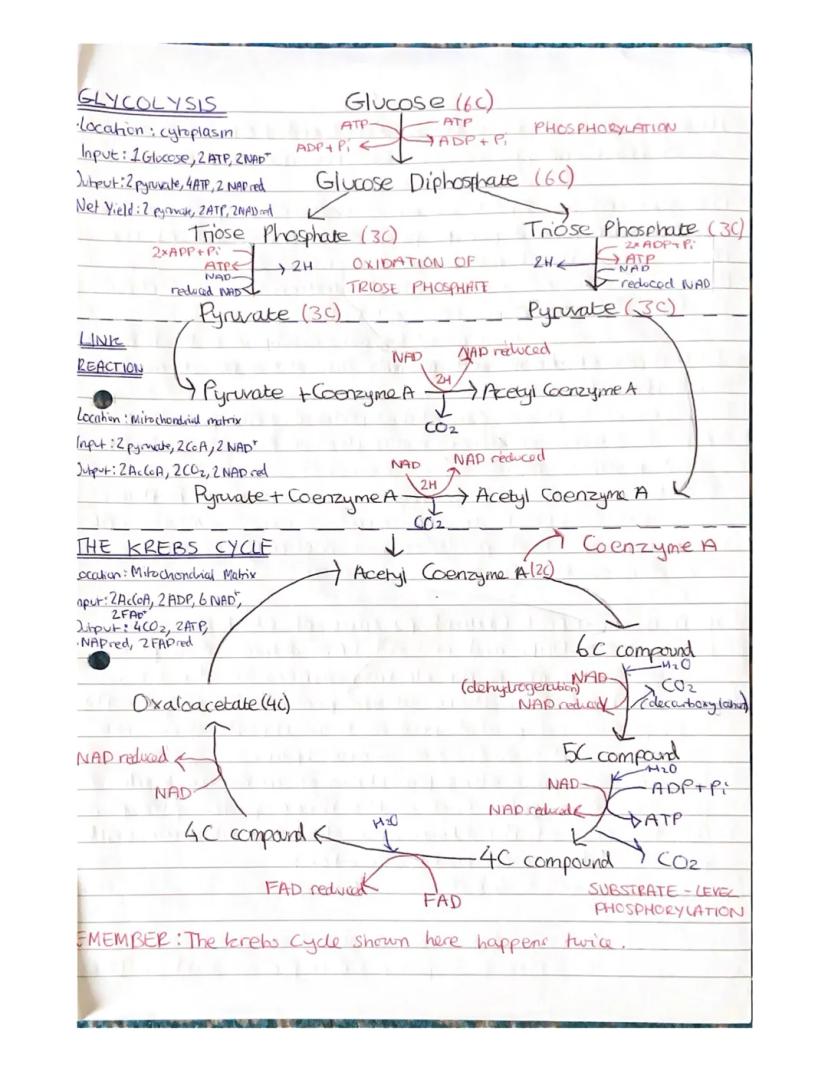 GLYCOLYSIS
Glucose (6C)
Location : cytoplasm
ATP
ATP
PHOSPHORYLATION
ADP + Pi
ADP + Pi
Input : 1 Glucose, 2 ATP, 2 NAD⁺
Output : 2 pyruvate, 4ATP, 2 NAD red
Glucose Diphosphate (6C)
Net Yield : 2 pyruvate, 2ATP, 2NAD red
Triose Phosphate (3C)
Triose Phosphate (3C)
2xADP+Pi
ATP
2H
NAD
reduced NAD
OXIDATION OF
TRIOSE PHOSPHATE
2xADP+Pi
ATP
2H
NAD
reduced NAD
Pyruvate (3C)
Pyruvate (3C)
LINK
REACTION
NAD
NAD reduced
2H
Pyruvate + Coenzyme A
Acetyl Coenzyme A
CO2
Location : Mitochondrial matrix
Input : 2 pyruvate, 2CoA, 2 NAD⁺
Output : 2AcCoA, 2CO2, 2 NAD red
NAD
NAD reduced
2H
Pyruvate + Coenzyme A
Acetyl Coenzyme A
CO2
THE KREBS CYCLE
Coenzyme A
ocation : Mitochondrial Matrix
Acetyl Coenzyme A (2C)
nput : 2AcCoA, 2 ADP, 6 NAD⁺,
2FAD⁺
Output : 4CO2, 2ATP,
NAD red, 2 FAD red
6C compound
H2O
NAD
(dehydrogenation)
NAD reduced
CO2
(decarboxylation)
Oxaloacetate (4C)
5C compound
H2O
NAD
ADP+Pi
NAD reduced
ATP
NAD reduced
NAD
4C compound
H2O
4C compound
CO2
FAD reduced
FAD
SUBSTRATE - LEVEL
PHOSPHORYLATION
EMEMBER : The krebs Cycle shown here happens twice.